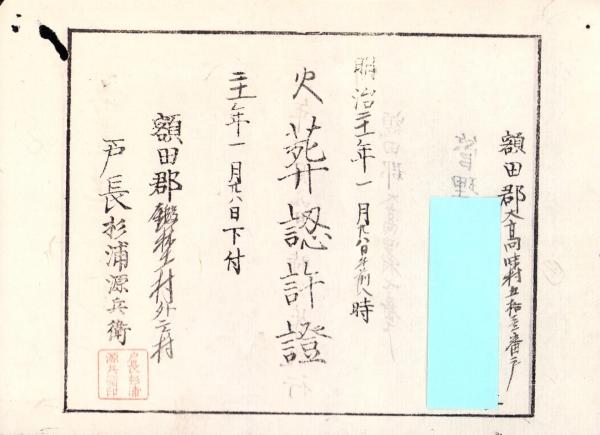 額田郡大高味村五拾壱番戸
管理
明治二十一年一月廿八日午前八時
火葬認許證
二十一年一月廿八日下付
額田郡 村外二村
戸長杉浦源兵衛
戸長杉浦
源兵衛印